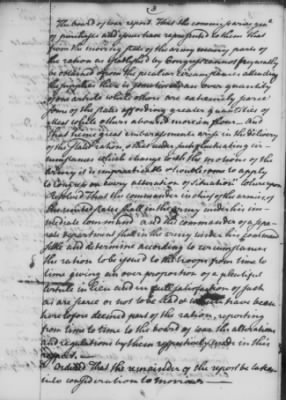 3
The board of war report. That the commissaries gen.l
of purchases and issues have represented to them that
from the moving state of the army many parts of
the ration as established by Congress cannot frequently
be obtained from the peculiar circumstances attending
the supplies there is sometimes an over quantity
of one article while others are extremely scarce
some of the states affording greater quantities of
meat while others abound more in flour. And
that hence great embarrassments arise in the delivery
of the stated ration, & that under such fluctuating cir-
cumstances which change with the motions of the
army it is impracticable & troublesome to apply
to Congress on every alteration of situation: Whereupon
Resolved That the commander in chief of the armies of
the united states shall in the army under his im-
mediate command and the commander of a sepa-
rate department shall in the army under his command
settle and determine according to circumstances
the ration to be issued to the troops from time to
time giving an over proportion of a plentiful
article in lieu and in full satisfaction of such
as are scarce or not to be had & which have been
heretofore deemed part of the ration, reporting
from time to time to the board of war the alterations
and regulations by them respectively made in this
respect.
Ordered That the remainder of the report be taken
into consideration to morrow